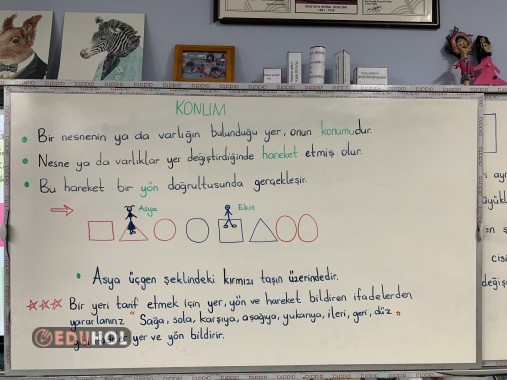 KONUM
• Bir nesnenin ya da varlığın bulunduğu yer, onun konumudur.
• Nesne ya da varlıklar yer değiştirdiğinde hareket etmiş olur.
• Bu hareket bir yön doğrultusunda gerçekleşir.
Asya Ekin
• Asya üçgen şeklindeki kırmızı taşın üzerindedir.
Bir yeri tarif etmek için yer, yön ve hareket bildiren ifadelerden
yararlanırız. " Sağa, sola, karşıya, aşağıya, yukarıya, ileri, geri, düz "
yer ve yön bildirir.
EDUHOL